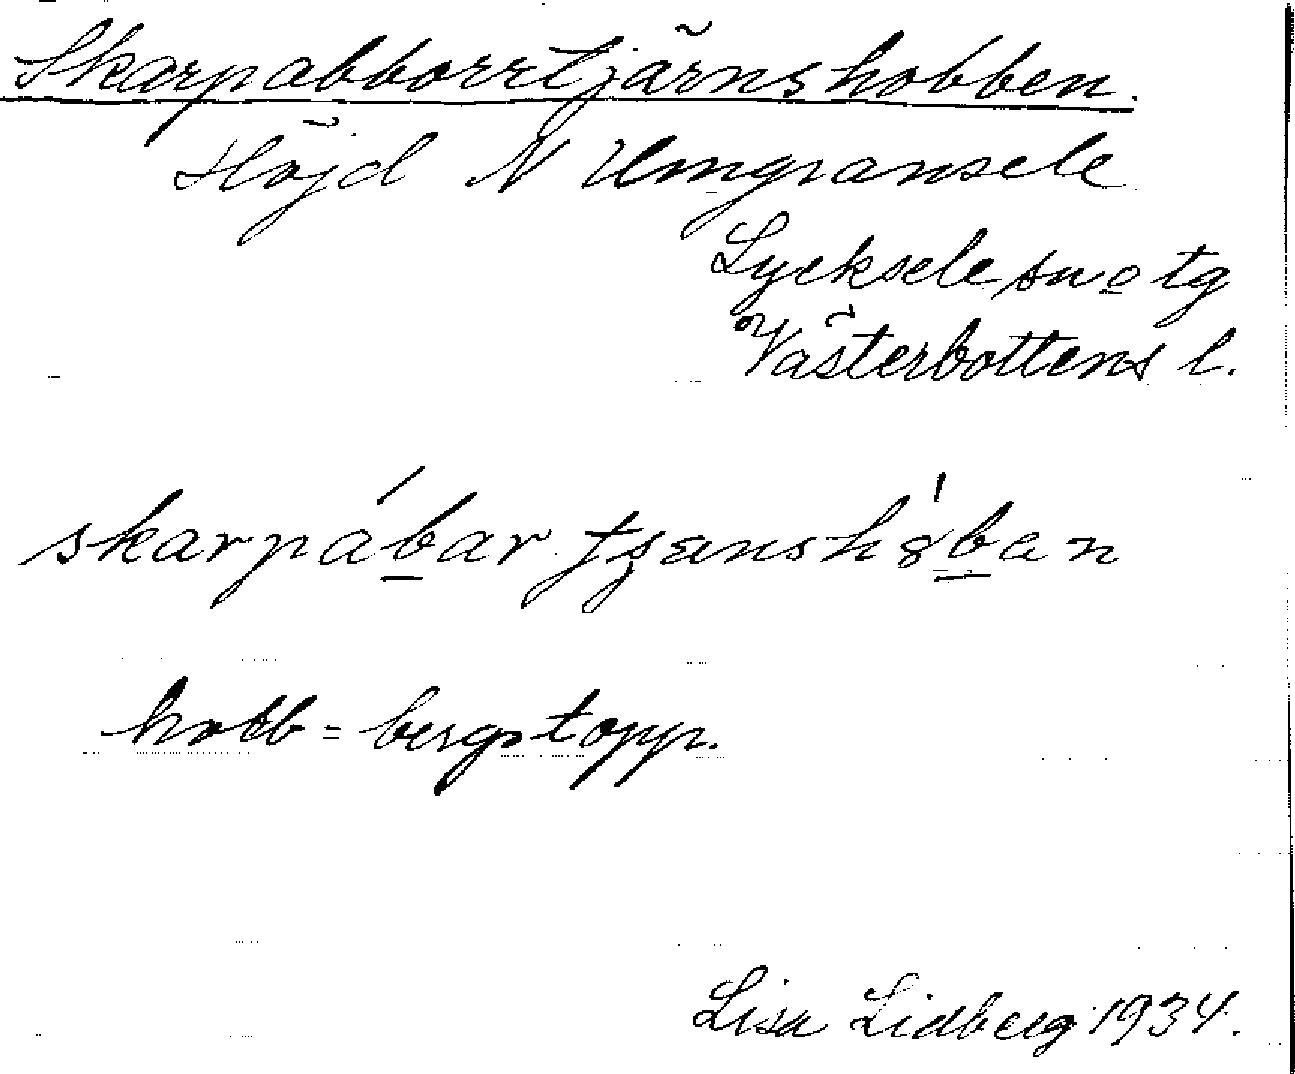 Skarpabborrtjärnshobben.
Höjd N Umgransele
Lycksele sn o tg
Västerbottens l.
skarpábar
hobb = bergstopp.
Lisa Lidberg 1934.